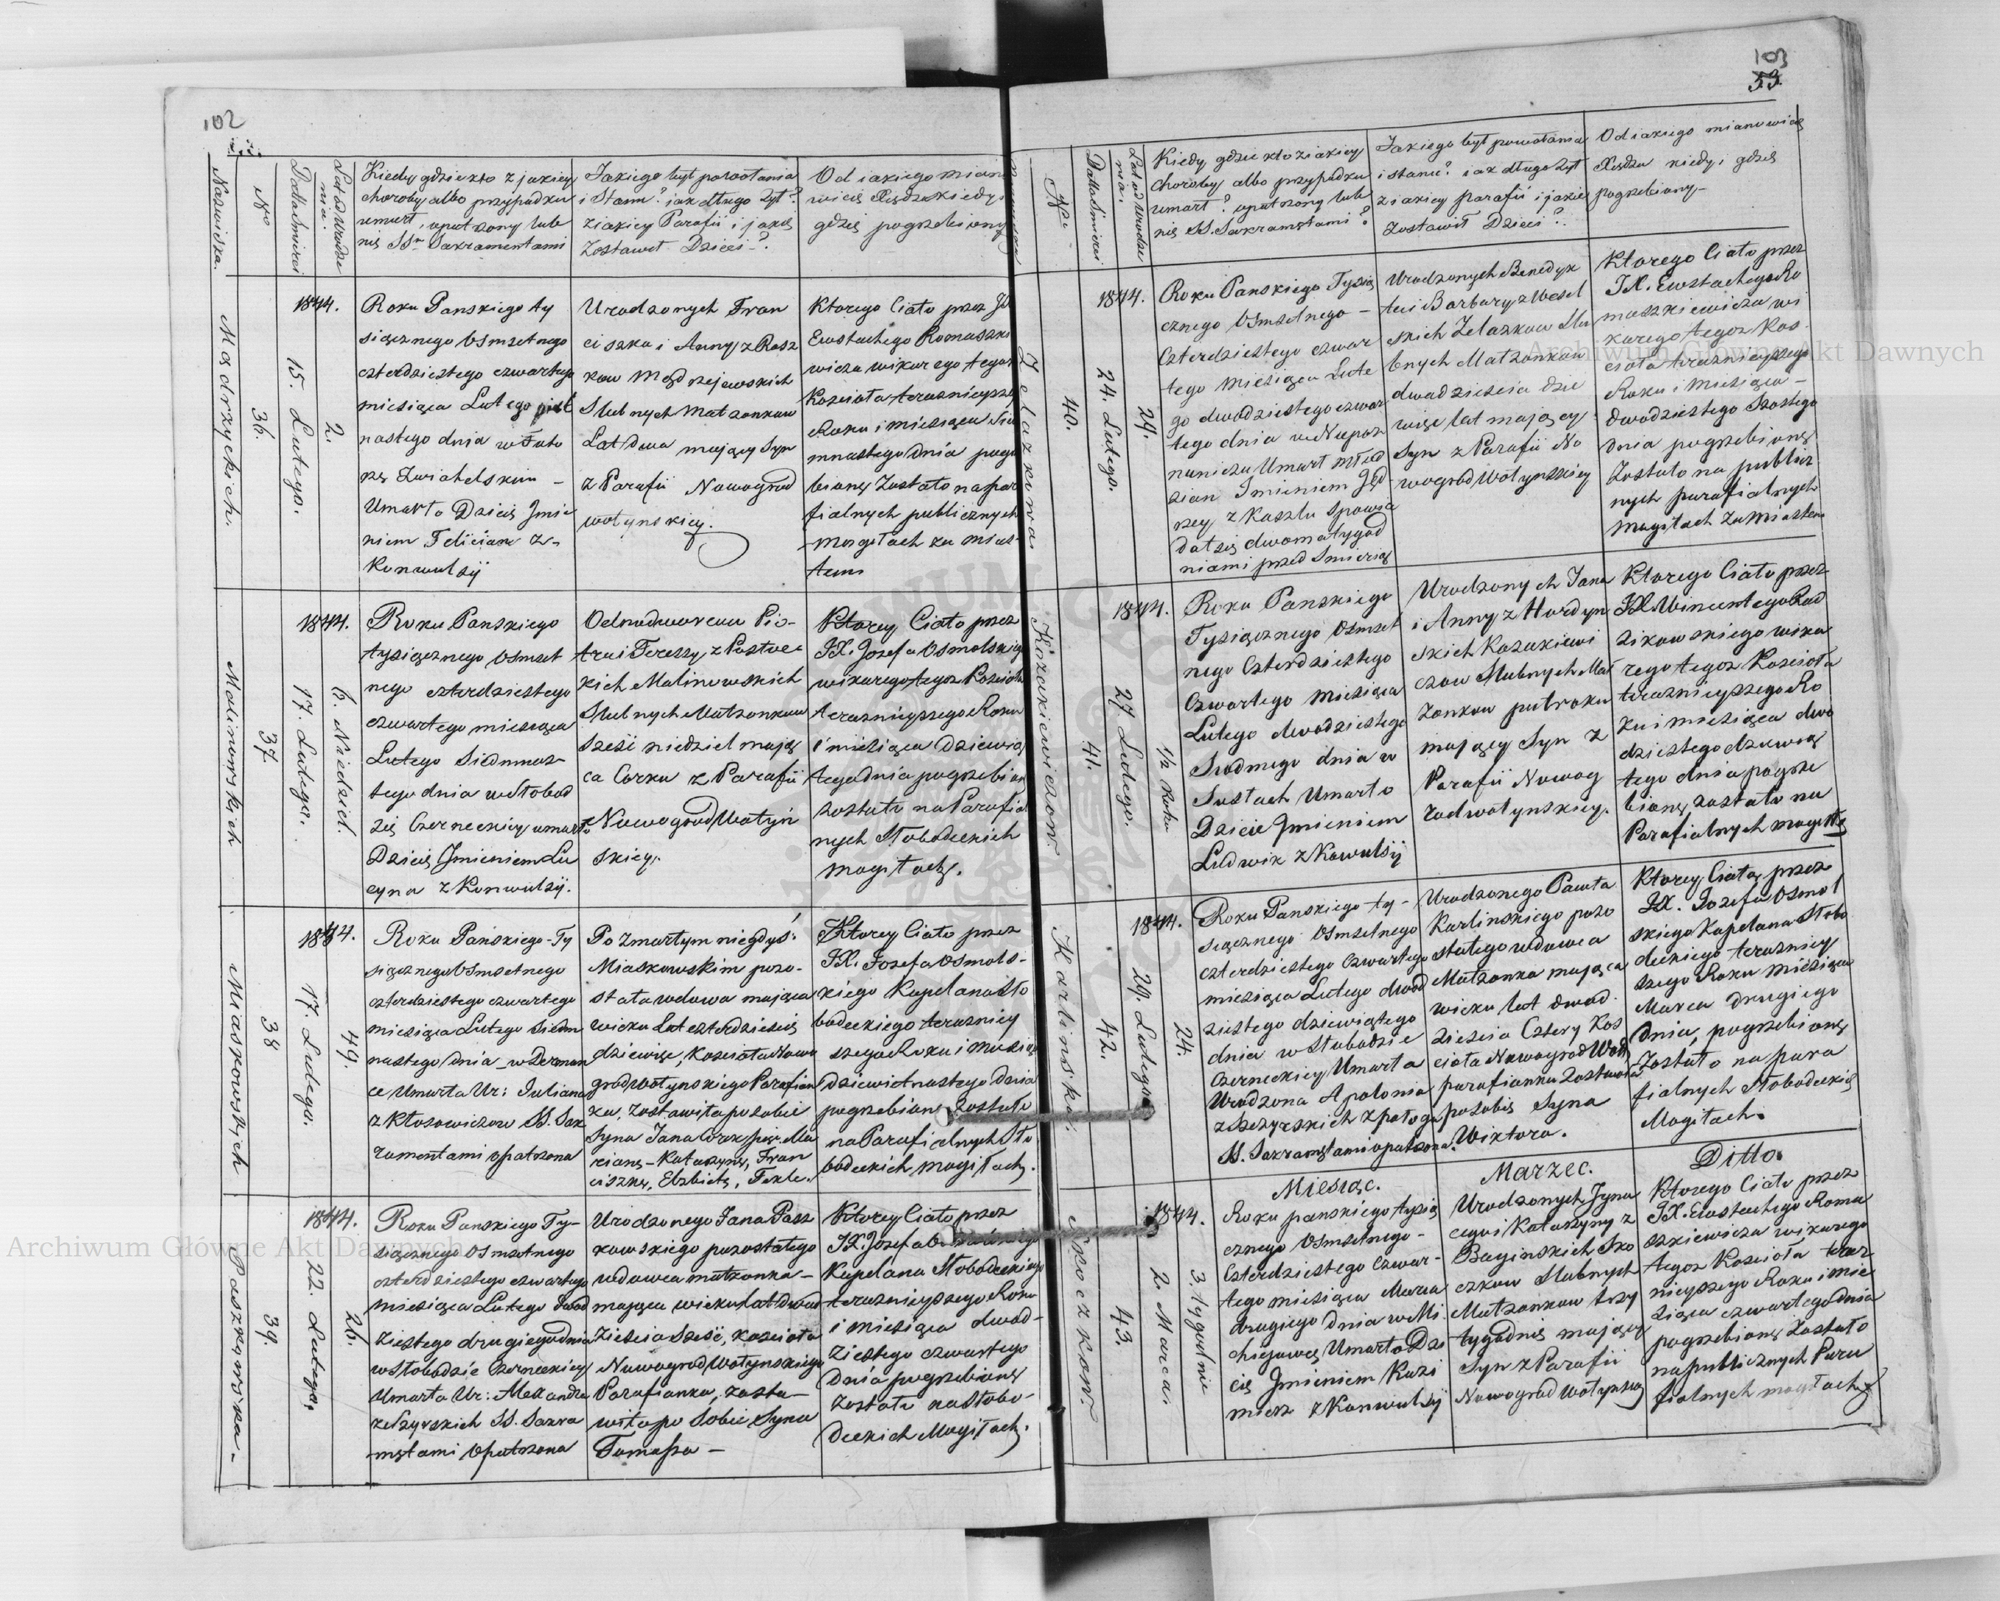 102
Nazwiska.
No
Datta Smierci
Lat od urodze
nia.
Kiedy gdzie kto z jakiey
choroby albo przypadku
umarł, opatrzony lub
nie SSmi Sakramentami
Jakiego był powołania
i Stanu? jak długo żył?
z iakiey Parafii i jakie
Zostawił Dzieci?
Od iakiego miano
wicie Xiędza kiedy i
gdzie pogrzebiony
Mądrzyckich.
36.
1844.
15. Lutego.
2.
Roku Panskiego ty
siącznego Osmsetnego
czterdziestego czwartego
miesiąca Lutego pięt
nastego dnia w Futo
rze Zwiahelskim –
Umarło Dziecie Jmie
niem Felician z
Konwulsij
Urodzonych Fran
ciszka i Anny z Rasz
kow Mądrzejewskich
Slubnych Małzonkow
Lat dwa maiący Syn
z Parafii Nowogrod
wołynskiey.
Ktorego Ciało przez JX
Ewstachego Romaszki
wicza wikarego tegoż
Kościoła teraznieyszeg
Roku i miesiąca Siu
mnastego dnia pogrze
bione Zostało na par
fialnych publicznych
mogiłach za mias-
tem
Malinowskich
37
1844.
17. Lutego.
6. Niedziel.
Roku Panskiego
tysiącznego Osmset
nego czterdziestego
czwartego miesiąca
Lutego Siedmnas-
tego dnia w Słobod
zie Czerneckiey umarło
Dziecie Jmieniem Lu
cyna z Konwulsij.
Odnodworcow Pio-
tra i Teressy z Postwe
kich Malinowskich
Slubnych Małzonkow
Sześć niedziel mają
ca Corka z Parafii
Nowogrod Wołyń
skiey.
Ktorey Ciało przez
JX. Jozefa Osmolskieg
wikarego tegoż Kościoła
teraznieyszego Roku
i miesiąca Dziewią
tego dnia pogrzebion
zostało na Parafial
nych Słobodeckich
mogiłach.
Miaskowskich
38
1844.
17. Lutego.
49.
Roku Pańskiego Ty
siącznego Osmsetnego
czterdziestego czwartego
miesiąca Lutego Siedm
nastego dnia w Derman
ce Umarła Ur: Juliana
z Kłosowiczow SS. Sak
ramentami opatrzona
Po zmarłym niegdyś
Miaskowskim pozo-
stała wdowa maiąca
wieku Lat czterdzieści
dziewięć, Kościoła Nowo
grodwołynskiego Parafian
ka, Zostawiła po sobie
Syna Jana Corek pięć Ma
rianę – Katarzynę, Fran
ciszkę, Elzbietę, Teklę.
Ktorey Ciało przez
JX. Jozefa Osmols-
kiego Kapelana Sło
bodeckiego terazniey
szego Roku i miesiąca
dziewietnastego dnia
pogrzebione Zostało
na Parafialnych Sło
bodeckich mogiłach.
Paszkowska –
39.
1844.
22. Lutego,
26.
Roku Panskiego Ty-
siącznego Osmsetnego
czterdziestego czwartego
miesiąca Lutego dwad
ziestego drugiego dnia
w Słobodzie Czerneckiey
Umarła Ur: Alexandra
SS. Sakra
mentami Opatrzona
Urodzonego Jana Pasz
kowskiego pozostałego
wdowca małzonka –
maiąca wieku lat dwad
zieścia Sześć, Kościoła
Nowogrod Wołynskiego
Parafianka, zosta –
wiła po Sobie Syna
Tomasza –
Ktorey Ciało przez
JX. Jozefa
Kapelana Słobodeckiego
teraznieyszego Roku
i miesiąca dwad-
ziestego czwartego
Dnia pogrzebione
Zostało na Słobo-
deckich Mogiłach.
103
53.
No
Datta Smierci
Lat od urodze
nia.
Kiedy gdzie kto z iakiey
choroby albo przypadku
umarł? opatrzony lub
nie SS. Sakramentami?
Jakiego był powołania
i stanu? jak długo żył
z iakiey parafii i jakie
zostawił Dzieci?
Od iakiego mianowicie
Xiędza kiedy i gdzie
pogrzebiony –
Zelazkowa.
40.
1844.
24. Lutego.
29.
Roku Panskiego Tysią
cznego Osmsetnego –
Czterdziestego czwar
tego Miesiąca Lute
go dwadziestego czwar
tego dnia w Niepoz
naniczu Umarł Mład
zian Jmieniem Jęd
rzey z Kaszlu Spowia
dał się dwoma tygod
niami przed Smiercią
Urodzonych Benedyk
ta i Barbary z Wesel
skich Zelazkow Slu
bnych Małzonkow
dwadzieścia dzie
więć lat maiący
Syn z Parafii No
wogrod Wołynskiey
Ktorego Ciało przez
JX. Ewstachego Ro
maszkiewicza wi
karego tegoz Kos
cioła teraznieyszego
Roku i Miesiąca –
Dwadziestego Szostego
Dnia pogrzebione
Zostało na public
nych parafialnych
mogiłach za miastem
Kozakiewiczow.
41.
1844.
27. Lutego.
1/2 Roku
Roku Panskiego
Tysiącznego Osmset
nego Czterdziestego
Czwartego Miesiąca
Lutego dwadziestego
Siodmego dnia w
Sustach Umarło
Dziecie Jmieniem
Ludwik z Kowulsij
Urodzonych Jana
i Anny z Hordyn
skich Kozakiewi
czow Slubnych Mał
zonkow putroku
maiący Syn z
Parafii Nowog
rodwołynskiey.
Ktorego Ciało przez
JX. Wincentego Rad
zikowskiego wika
rego tegoz Kościoła
teraznieyszego Ro
ku i miesiąca dwa
dziestego dziewią
tego dnia pogrze
bione zostało na
Parafialnych mogiłach
Karlinska.
42.
1844.
29. Lutego
24.
Roku Panskiego ty –
siącznego Osmsetnego
czterdziestego Czwartego
miesiąca Lutego dwad
ziestego dziewiątego
dnia w Słobodzie
Czerneckiey Umarła
Urodzona Apolonia
z połogu
SS. Sakramentami opatrzona.
Urodzonego Pawła
Karlinskiego pozo
stałego wdowca
Małzonka maiąca
wieku lat dwad
zieścia Cztery Koś
cioła Nowogrod Woł
parafianka Zostawiła
po sobie Syna
Wiktora.
Ktorey Ciało przez
JX. Jozefa Osmol
skiego Kapelana Słobo
deckiego terazniey
szego Roku Miesiąca
Marca Drugiego
Dnia, pogrzebione
Zostało na para
fialnych Słobodeckich
Mogiłach.
Miesiąc. Marzec. Ditto.
Skoczkow.
43.
1844.
2. Marca.
3. tygodnie
Roku panskiego tysią
cznego Osmsetnego –
Czterdziestego Czwar-
tego miesiąca Marca
drugiego dnia w Mi
Umarło Dzi
cię Jmieniem Kazi
mierz z Konwulsij
Urodzonych Jgna
cego i Katarzyny z
Baginskich Sko
czkow Slubnych
Małzonkow trzy
tygodnie maiący
Syn z Parafii
Nowogrod Wołynskiey
Ktorego Ciało przez
JX. Ewstachego Roma
szkiewicza wikarego
tegoz Kościoła teraz
nieyszego Roku i mie
siąca czwartego dnia
pogrzebione Zostało
na publicznych Para
fialnych mogiłach
Archiwum Główne Akt Dawnych
Archiwum Główne Akt Dawnych